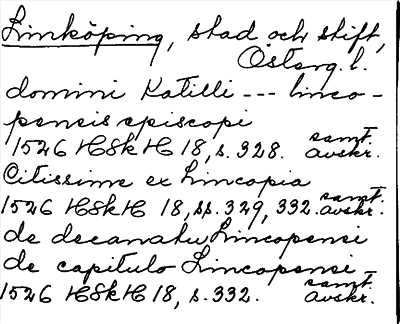 Linköping, stad och stift,
Österg. l.
domini Katilli --- linco-
pensis episcopi
1526 HSkH 18, s. 328. samt. avskr.
Citissime ex Lincopia
1526 HSkH 18, ss. 329, 332. samt. avskr.
de decanatu Lincopensi
de capitulo Lincopensi
1526 HSkH 18, s. 332. samt. avskr.